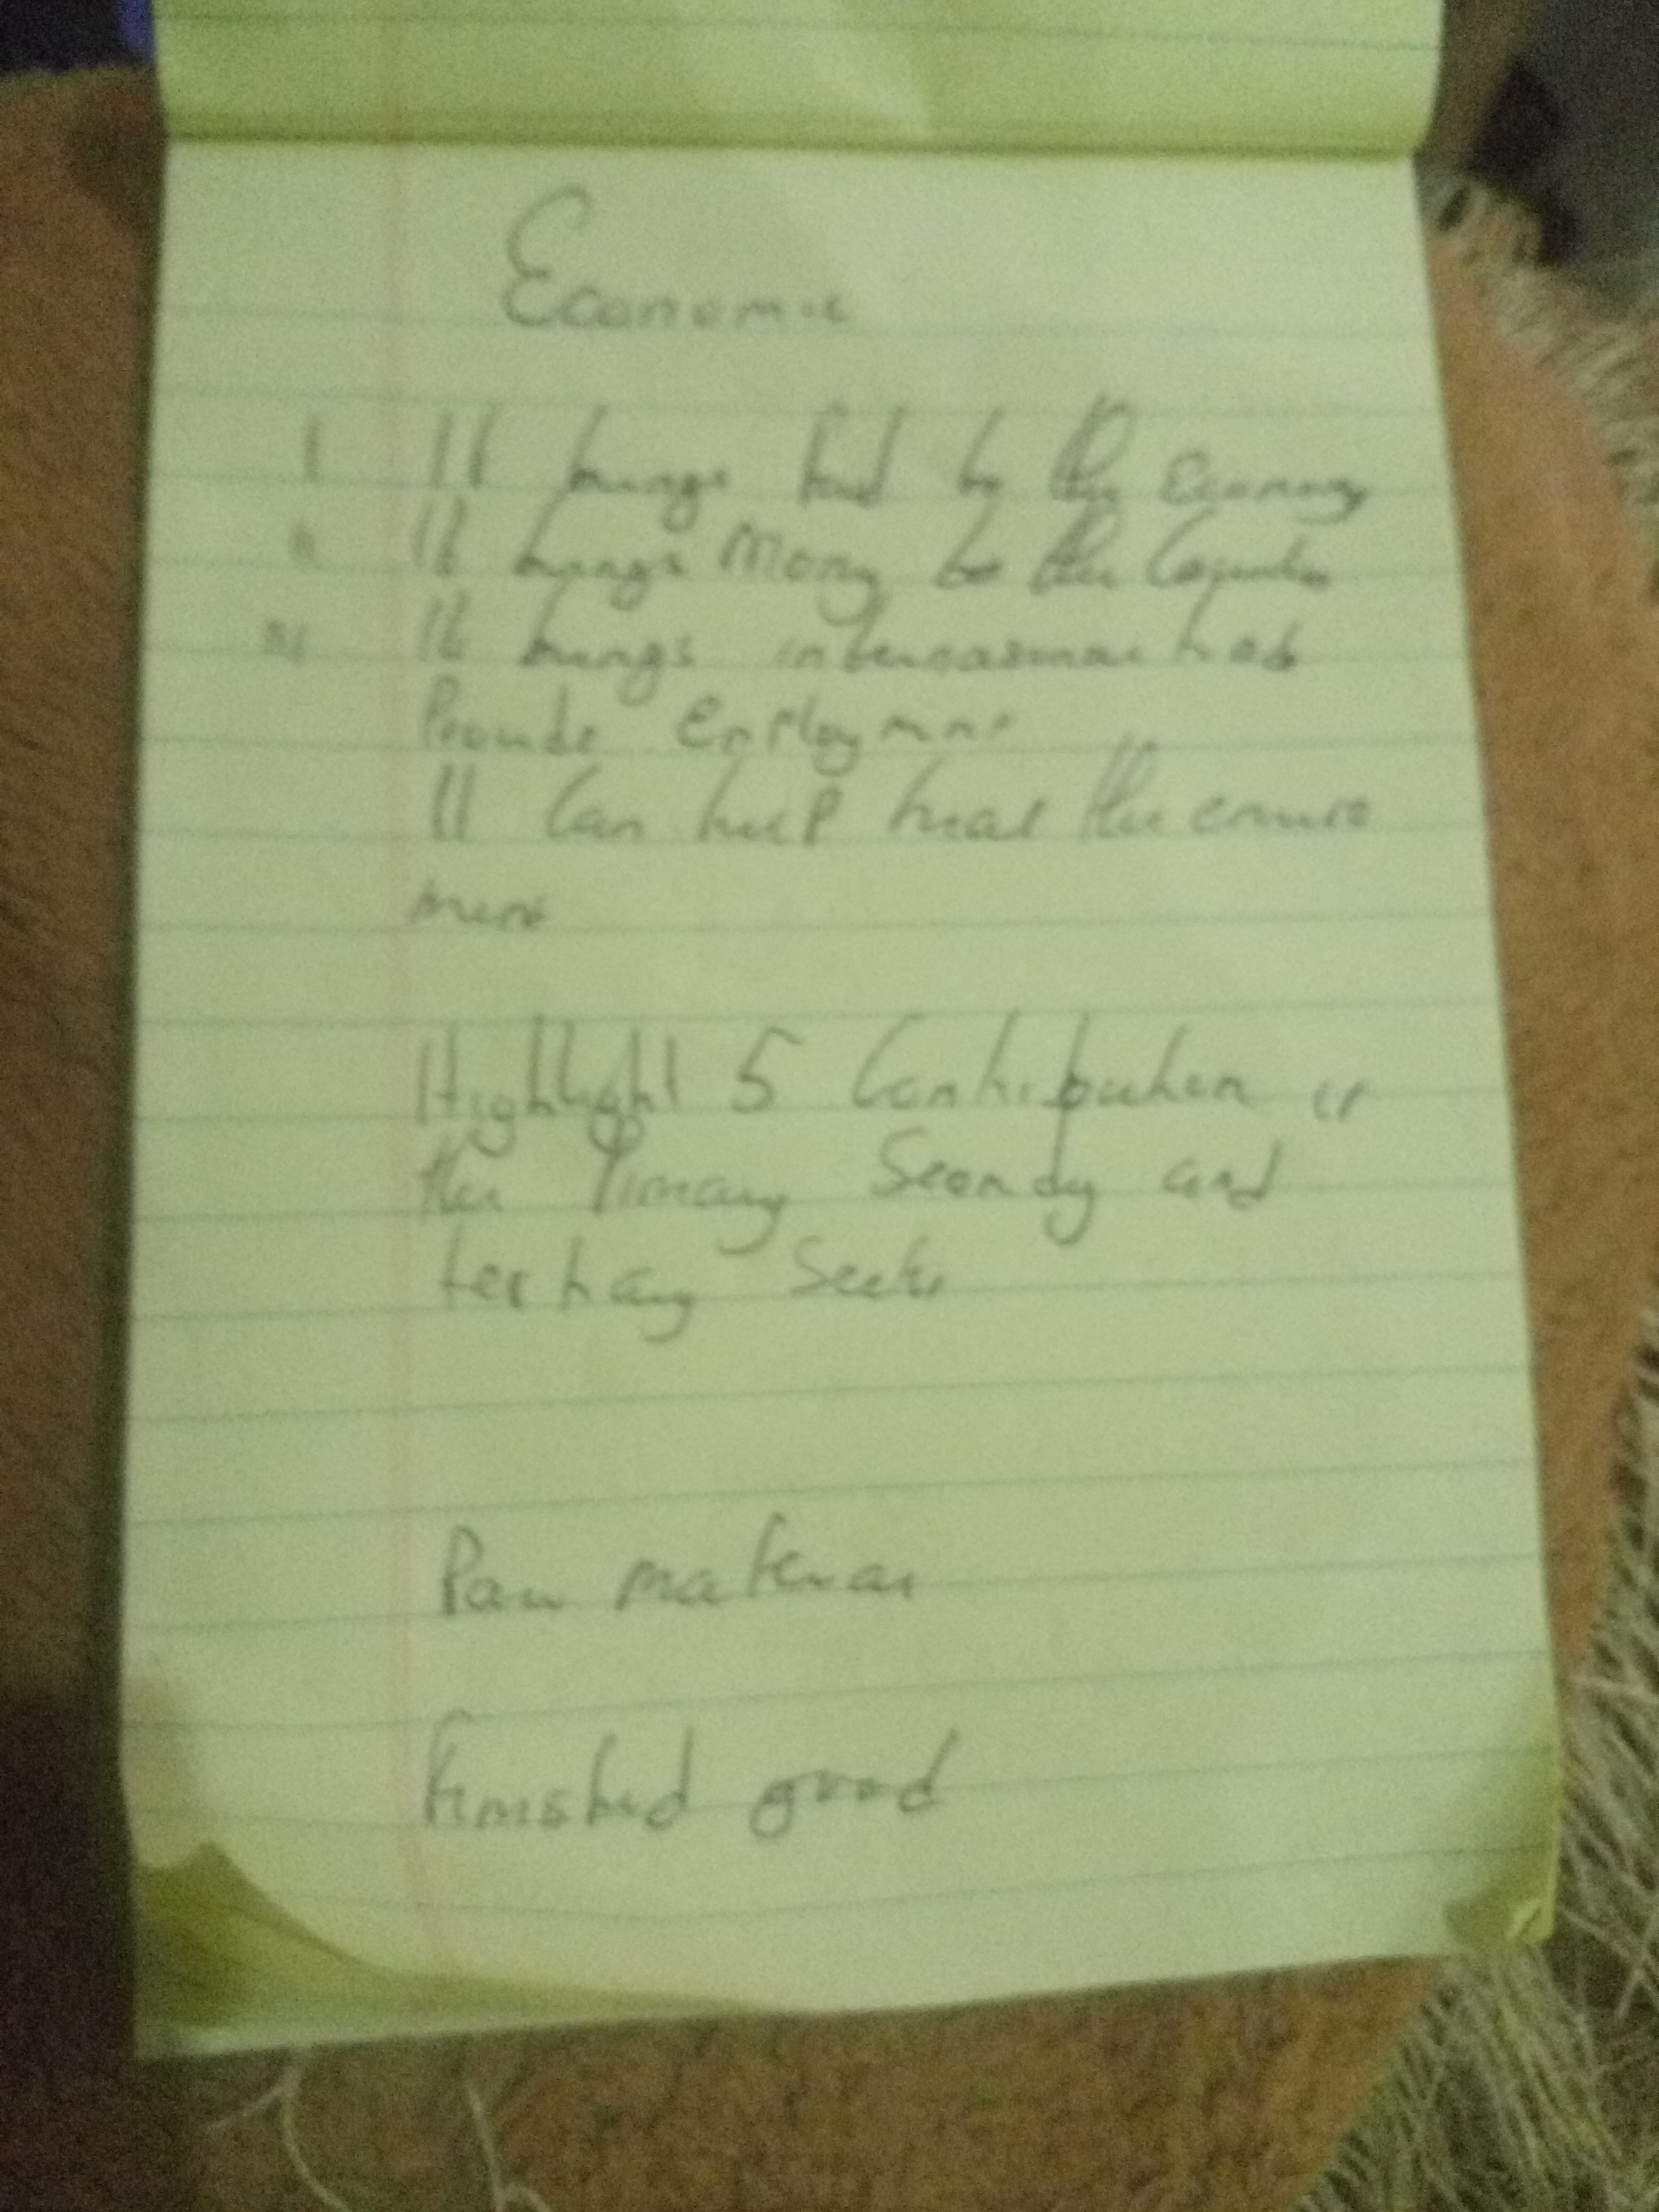 Economic
I It brings food to the Economy
II It brings Mony to the
III It brings
Provide Employment
It can help the
ment
Highlight 5 Contribution
the Primary Secondy and
tertiary Sector
Raw material
finished good